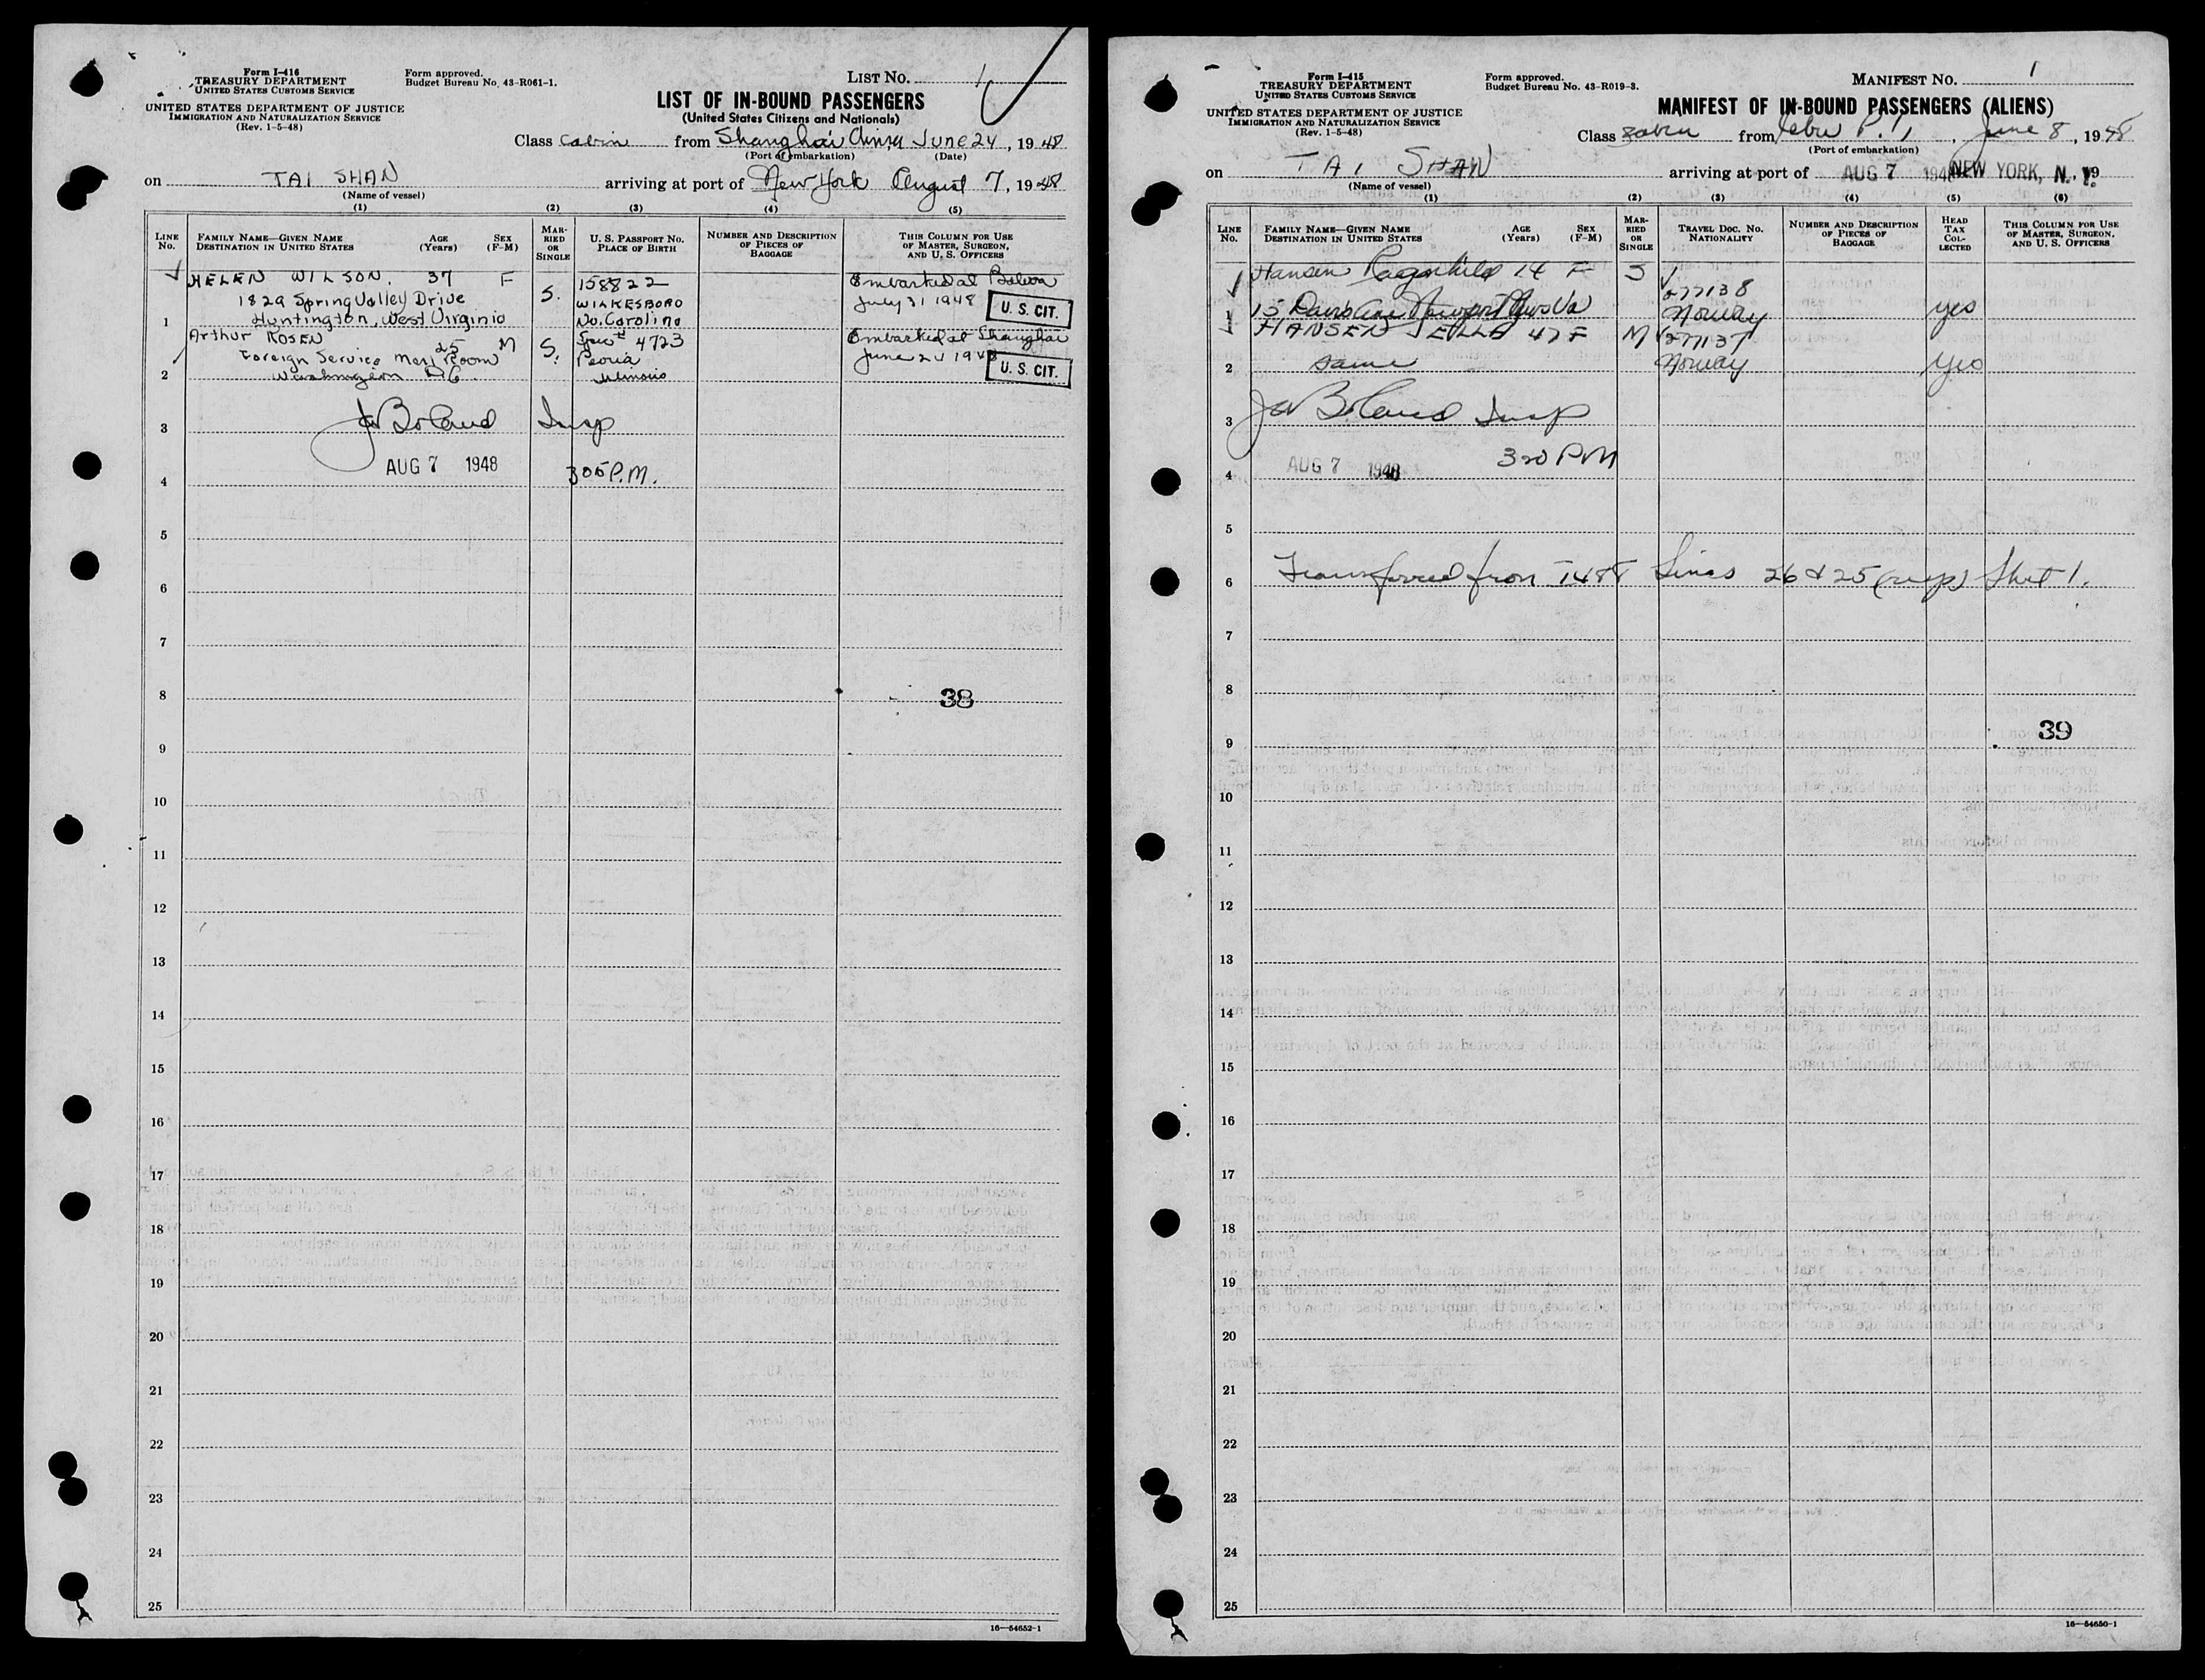 Form I-416
TREASURY DEPARTMENT
UNITED STATES CUSTOMS SERVICE
UNITED STATES DEPARTMENT OF JUSTICE
IMMIGRATION AND NATURALIZATION SERVICE
(Rev. 1-5-48)
Form approved.
Budget Bureau No. 43-R061-1.
LIST NO. 1
LIST OF IN-BOUND PASSENGERS
(United States Citizens and Nationals)
Class Cabin from Shanghai China June 24, 1948
(Port of embarkation) (Date)
on TAI SHAN arriving at port of New York August 7, 1948
(Name of vessel)
(1) (2) (3) (4) (5)
LINE No.
FAMILY NAME—GIVEN NAME AGE (Years) SEX (F-M)
DESTINATION IN UNITED STATES
MARRIED OR SINGLE
U. S. PASSPORT NO.
PLACE OF BIRTH
NUMBER AND DESCRIPTION OF PIECES OF BAGGAGE
THIS COLUMN FOR USE OF MASTER, SURGEON, AND U. S. OFFICERS
HELEN WILSON. 37 F S. 158822 Embarked at
1829 Spring Valley Drive WILKESBORO July 31 1948 U. S. CIT.
1 Huntington, West Virginia No. Carolina
Arthur ROSEN 25 M S. 4723 Embarked at Shanghai
Foreign Service Mail Room Peoria June 24 1948 U. S. CIT.
2 Washington DC. Illinois
3 J W Boland Insp
AUG 7 1948 305 P.M.
4
5
6
7
8 38
9
10
11
12
13
14
15
16
17
18
19
20
21
22
23
24
25
16—54652-1
Form I-415
TREASURY DEPARTMENT
UNITED STATES CUSTOMS SERVICE
UNITED STATES DEPARTMENT OF JUSTICE
IMMIGRATION AND NATURALIZATION SERVICE
(Rev. 1-5-48)
Form approved.
Budget Bureau No. 43-R019-3.
MANIFEST NO. 1
MANIFEST OF IN-BOUND PASSENGERS (ALIENS)
Class Cabin from Cebu P.I., June 8, 1948
(Port of embarkation)
on TAI SHAN arriving at port of AUG 7 1948 NEW YORK, N. Y. 19
(Name of vessel)
(1) (2) (3) (4) (5) (6)
LINE No.
FAMILY NAME—GIVEN NAME AGE (Years) SEX (F-M)
DESTINATION IN UNITED STATES
MARRIED OR SINGLE
TRAVEL DOC. NO.
NATIONALITY
NUMBER AND DESCRIPTION OF PIECES OF BAGGAGE
HEAD TAX COLLECTED
THIS COLUMN FOR USE OF MASTER, SURGEON, AND U. S. OFFICERS
Hansen Ragnhild 14 F S V 277138
1 15 Newport News Va Norway yes
HANSEN 47 F M V 277137
2 same Norway yes
3 J W Boland Insp
AUG 7 1948 320 PM
4
5
6 Transferred from I488 Lines 26 & 25 (resp) Sheet 1.
7
8
9 39
10
11
12
13
14
15
16
17
18
19
20
21
22
23
24
25
16—54650-1